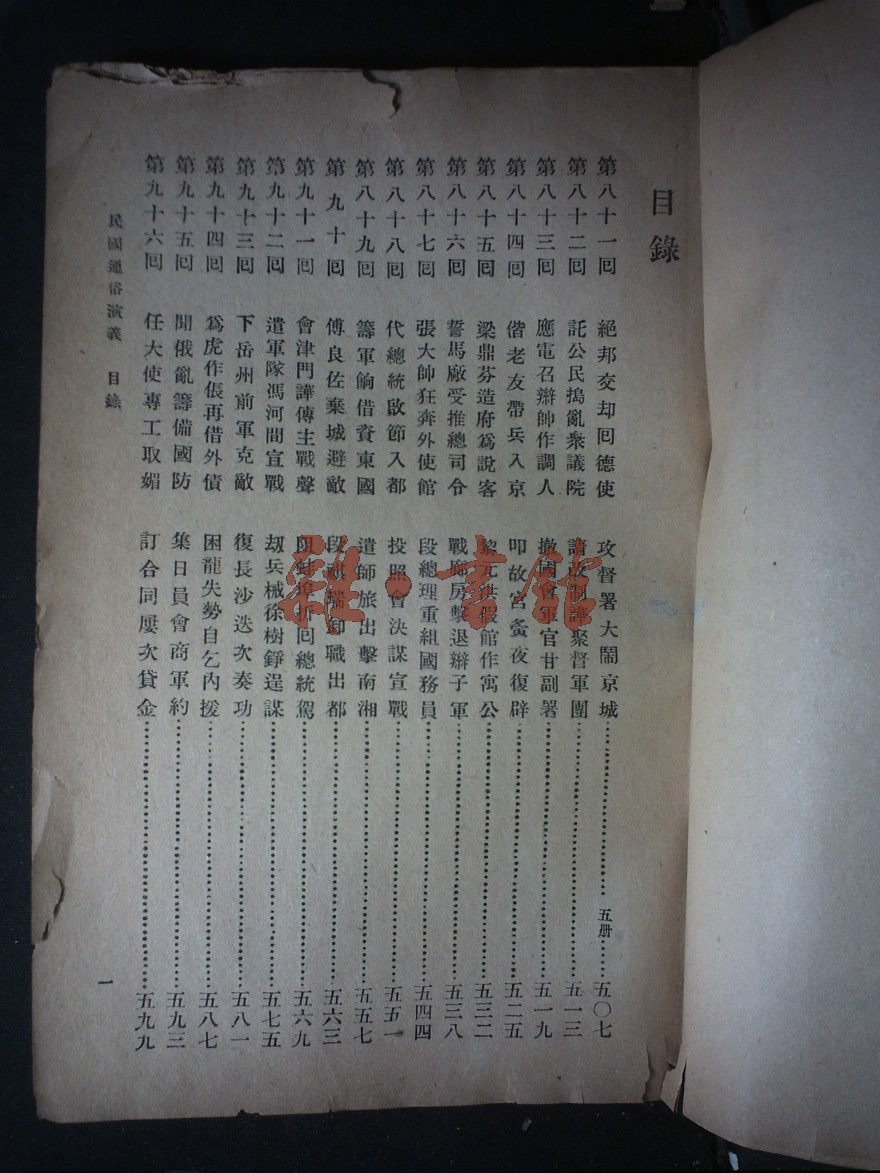 目錄
第八十一囘 絕邦交却囘德使 攻督署大鬧京城 五册 五〇七
第八十二囘 託公民搗亂衆議院 請改制譁聚督軍團 五一三
第八十三囘 應電召辮帥作調人 撤國會軍官甘副署 五一九
第八十四囘 偕老友帶兵入京 叩故宮夤夜復辟 五二五
第八十五囘 梁鼎芬造府爲說客 黎元洪假館作寓公 五三二
第八十六囘 誓馬廠受推總司令 戰廊房擊退辮子軍 五三八
第八十七囘 張大帥狂奔外使館 段總理重組國務員 五四四
第八十八囘 代總統啟節入都 投照會決謀宣戰 五五一
第八十九囘 籌軍餉借資東國 遣師旅出擊南湘 五五七
第九十囘 傅良佐棄城避敵 段祺瑞卸職出都 五六三
第九十一囘 會津門譁傳主戰聲 阻蚌埠折囘總統駕 五六九
第九十二囘 遣軍隊馮河間宣戰 刼兵械徐樹錚逞謀 五七五
第九十三囘 下岳州前軍克敵 復長沙迭次奏功 五八一
第九十四囘 爲虎作倀再借外債 困龍失勢自乞內援 五八七
第九十五囘 聞俄亂籌備國防 集日員會商軍約 五九三
第九十六囘 任大使專工取媚 訂合同屢次貸金 五九九
民國通俗演義 目錄
一
雜·書館